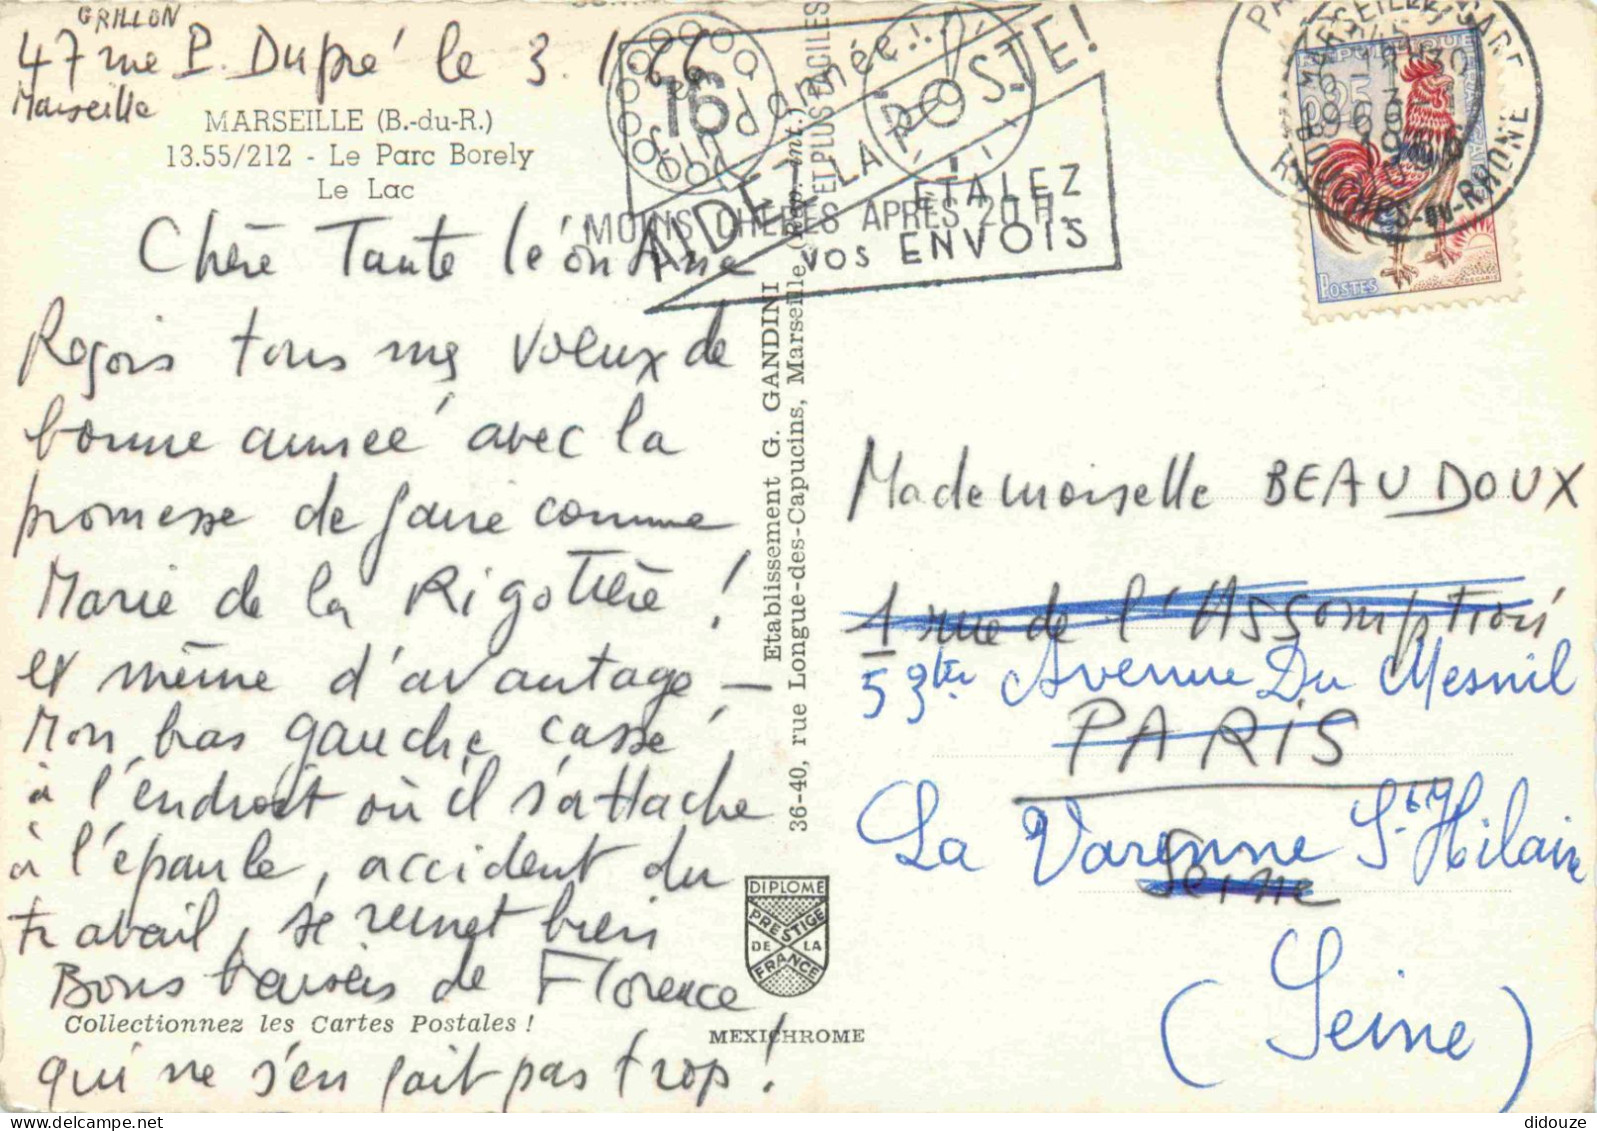 GRILLON
47 rue P. Dupré le 3.1.66
Marseille
MARSEILLE (B.-du-R.)
13.55/212 - Le Parc Borely
Le Lac
Chère Tante Léontine
Reçois tous mes voeux de
bonne année avec la
promesse de faire comme
Marie de la Rigotière !
et même d'avantage -
Mon bras gauche, cassé
à l'endroit où il s'attache
à l'épaule, accident du
travail, se remet bien
Bons baisers de Florence
Collectionnez les Cartes Postales !
qui ne s'en fait pas trop !
Etablissement G. GANDINI
36-40, rue Longue-des-Capucins, Marseille (Rep. Int.)
DIPLOME
PRESTIGE
DE LA
FRANCE
MEXICHROME
16
fin d'année !
AIDEZ LA POSTE !
ET PLUS FACILES
MOINS CHÈRES APRÈS 20 H.
ÉTALEZ
VOS ENVOIS
MARSEILLE GARE
BOUCHES-DU-RHONE
POSTES
Mademoiselle BEAUDOUX
1 rue de l'Assomption
53 ter Avenue Du Mesnil
PARIS
La Varenne St Hilaire
Seine
(Seine)
didouze